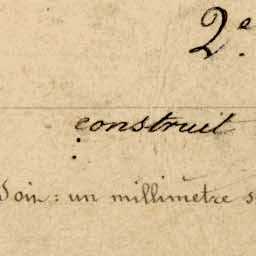 2e.
construit
Soit: un millimètre